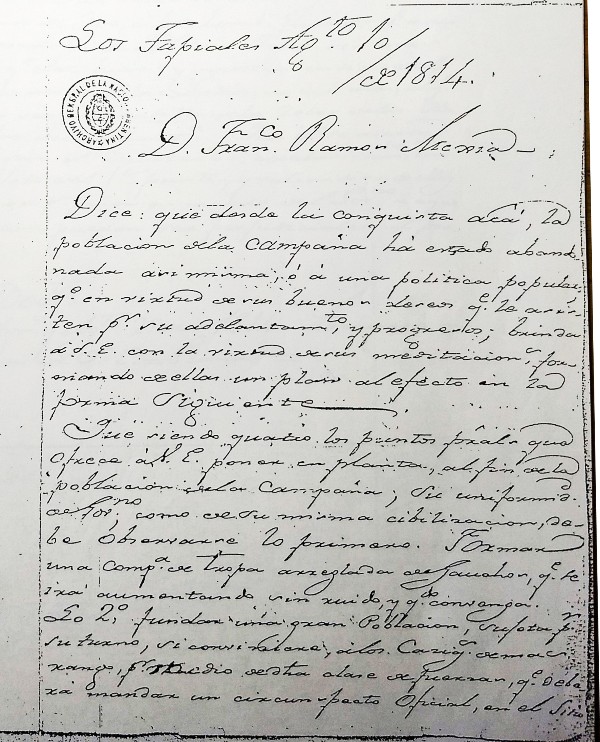 Los Tapiales Agto. 10/
/ de 1814.
ARCHIVO GENERAL DE LA NACION ARGENTINA
D. Franco. Ramon Mexia
Dice: que desde la conquista acá, la
poblacion de la Campaña há estado abando
nada asi misma, ó á una politica popular,
qe. en virtud de sus buenos deseos qe. le asis-
ten pr. su adelantamto., y progresos; brinda
á S. E. con la virtud de sus meditacions. for-
mando de ellas un plan al efecto en la
forma Siguiente
Que siendo quatro los puntos prãls que
ofrece á S. E. poner en planta, al fin de la
poblacion de la Campaña; su uniformd.
de Gov.no, como de su misma cibilizacion, de-
be observarse lo primero. Formar
una Compa. de tropa arreglada de Gauchos, qe. se
irá aumentando sin ruido, y qdo. convenga.
Lo 2o. fundar una gran Poblacion, sugeta pr.
su turno, si conviniere, a los Caciqs. de mas
rango, pr. medio de dha clase de fuerzas, qe. debe
rá mandar un circunspecto Oficial, en el Sitio